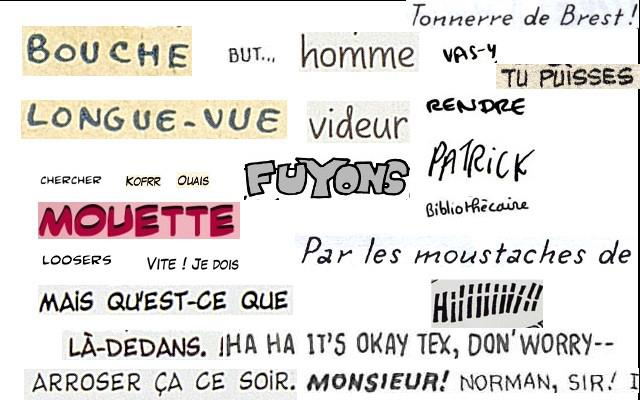 Tonnerre de Brest!
BOUCHE BUT... homme VAS-Y
TU PUISSES
LONGUE-VUE videur RENDRE
PATRICK
CHERCHER KOFRR OUAIS FUYONS
Bibliothécaire
MOUETTE
LOOSERS VITE ! JE DOIS Par les moustaches de
MAIS QU'EST-CE QUE Hiiiiiiii!!
LÀ-DEDANS. HA HA IT'S OKAY TEX, DON'WORRY--
ARROSER ÇA CE SOIR. MONSIEUR! NORMAN, SIR! I